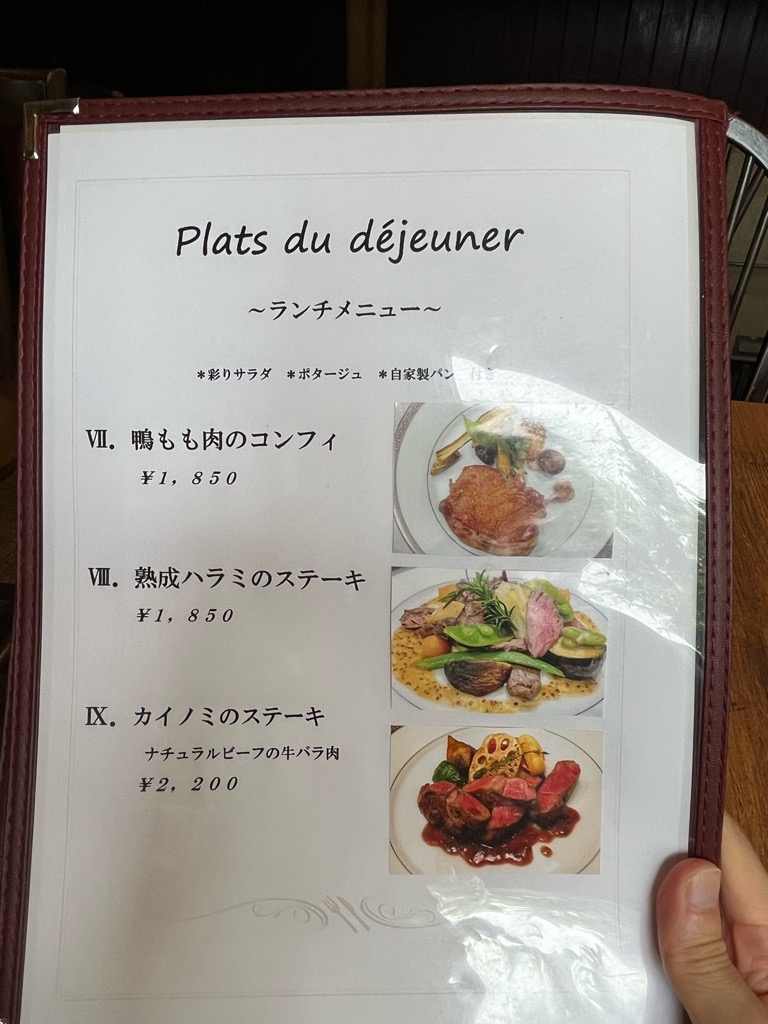 Plats du déjeuner
~ランチメニュー~
*彩りサラダ *ポタージュ *自家製パン 付き
Ⅶ. 鴨もも肉のコンフィ
¥1,850
Ⅷ. 熟成ハラミのステーキ
¥1,850
Ⅸ. カイノミのステーキ
ナチュラルビーフの牛バラ肉
¥2,200